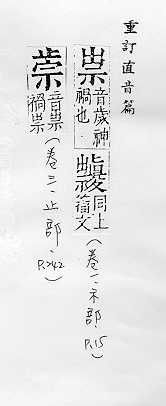 重訂直音篇
祟 音歲神
禍也
同上
籀文
(卷一、示部、P.15)
音祟
禍祟
(卷三、止部、P.242)